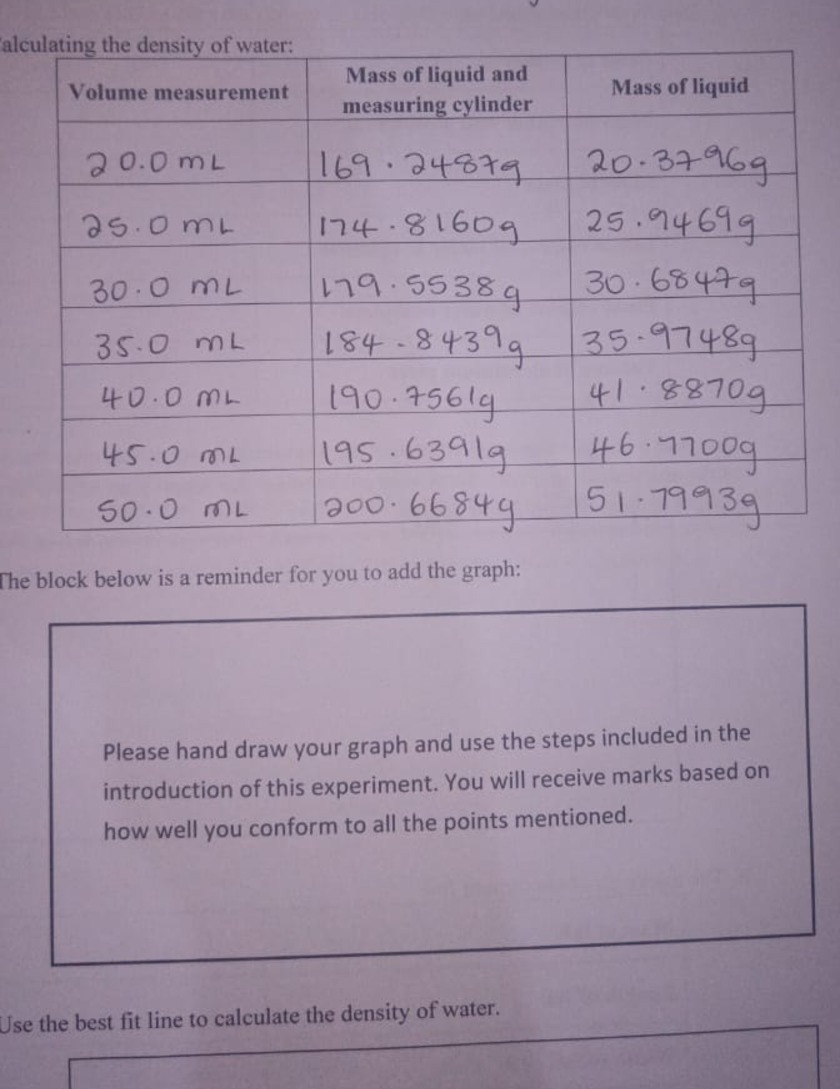 alculating the density of water:
Volume measurement
Mass of liquid and
measuring cylinder
Mass of liquid
20.0 mL 169.2487g 20.3796g
25.0 mL 174.8160g 25.9469g
30.0 mL 179.5538g 30.6847g
35.0 mL 184.8439g 35.9748g
40.0 mL 190.7561g 41.8870g
45.0 mL 195.6391g 46.7700g
50.0 mL 200.6684g 51.7993g
The block below is a reminder for you to add the graph:
Please hand draw your graph and use the steps included in the
introduction of this experiment. You will receive marks based on
how well you conform to all the points mentioned.
Use the best fit line to calculate the density of water.